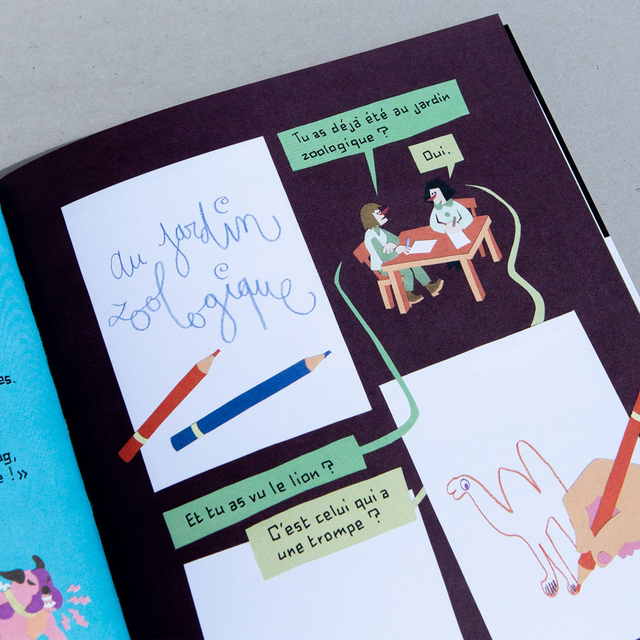 es.
ng,
e ! »
au jardin
zoologique
Tu as déjà été au jardin
zoologique ?
Oui.
Et tu as vu le lion ?
C'est celui qui a
une trompe ?